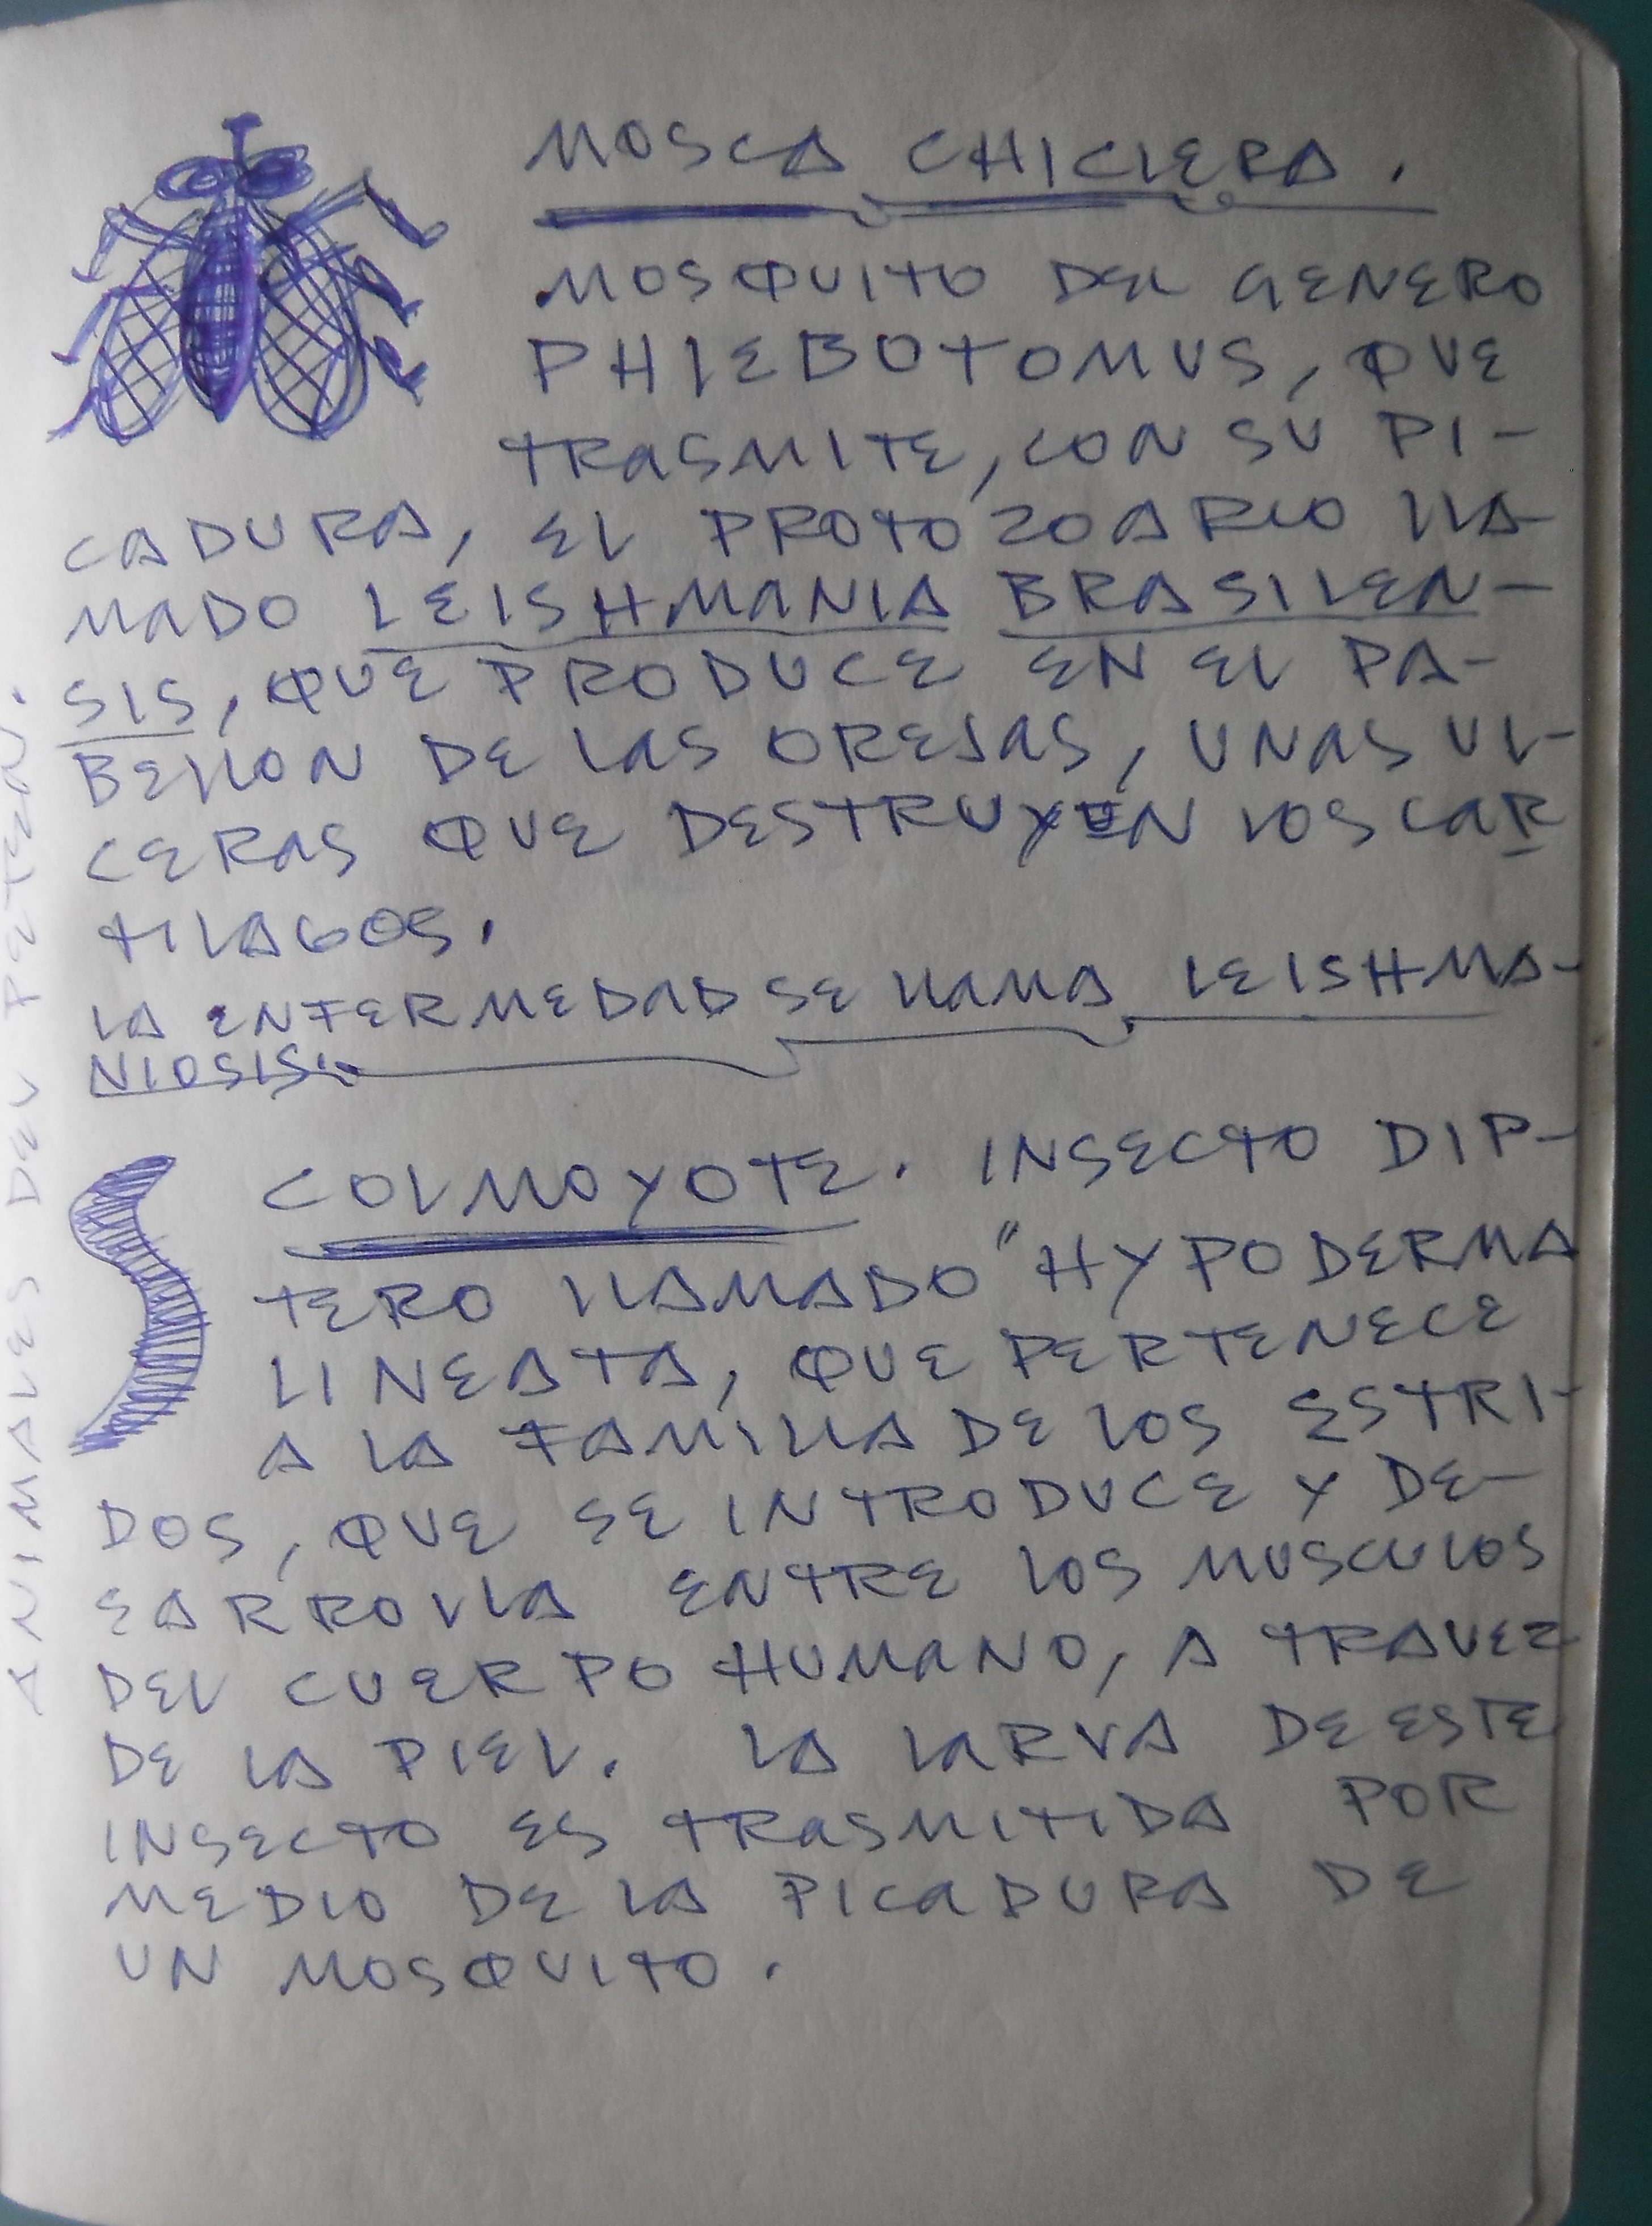 MOSCA CHICLERA.
MOSQUITO DEL GENERO
PHLEBOTOMUS, QUE
TRASMITE, CON SU PI-
CADURA, EL PROTOZOARIO LLA-
MADO LEISHMANIA BRASILEN-
SIS, QUE PRODUCE EN EL PA-
BELLON DE LAS OREJAS, UNAS UL-
CERAS QUE DESTRUYEN LOS CAR
TILAGOS.
LA ENFERMEDAD SE LLAMA LEISHMA-
NIOSIS.
COLMOYOTE. INSECTO DIP-
TERO LLAMADO "HYPODERMA
LINEATA, QUE PERTENECE
A LA FAMILIA DE LOS ESTRI-
DOS, QUE SE INTRODUCE Y DE-
EARROLLA ENTRE LOS MUSCULOS
DEL CUERPO HUMANO, A TRAVEZ
DE LA PIEL. LA LARVA DE ESTE
INSECTO ES TRASMITIDA POR
MEDIO DE LA PICADURA DE
UN MOSQUITO.
ANIMALES DEL PETEN.